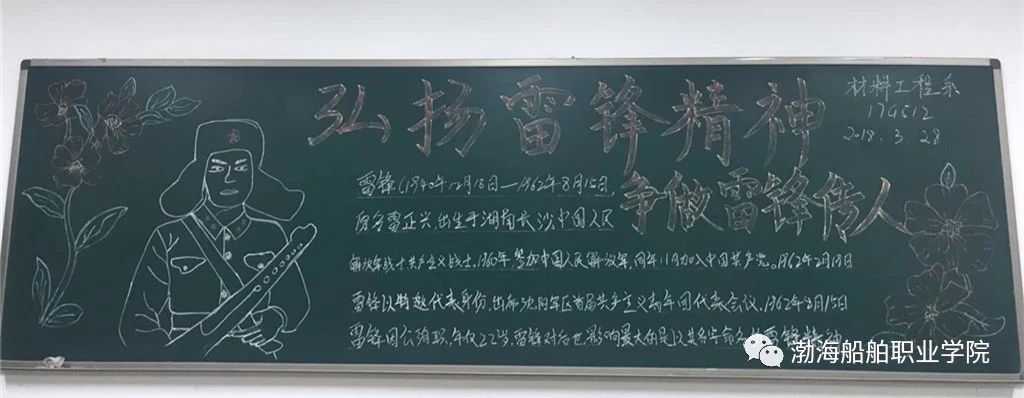 弘扬雷锋精神
材料工程系
179512
2018.3.28
争做雷锋传人
雷锋(1940年12月18日—1962年8月15日,
原名雷正兴,出生于湖南长沙中国人民
解放军战士共产主义战士,1960年,参加中国人民解放军,同年11月加入中国共产党。1962年2月19日
雷锋以特邀代表身份,出席沈阳军区首届共产主义青年团代表会议,1962年8月15日
雷锋因公殉职,年仅22岁,雷锋对后世影响最大的是以其名命名的雷锋精神
渤海船舶职业学院